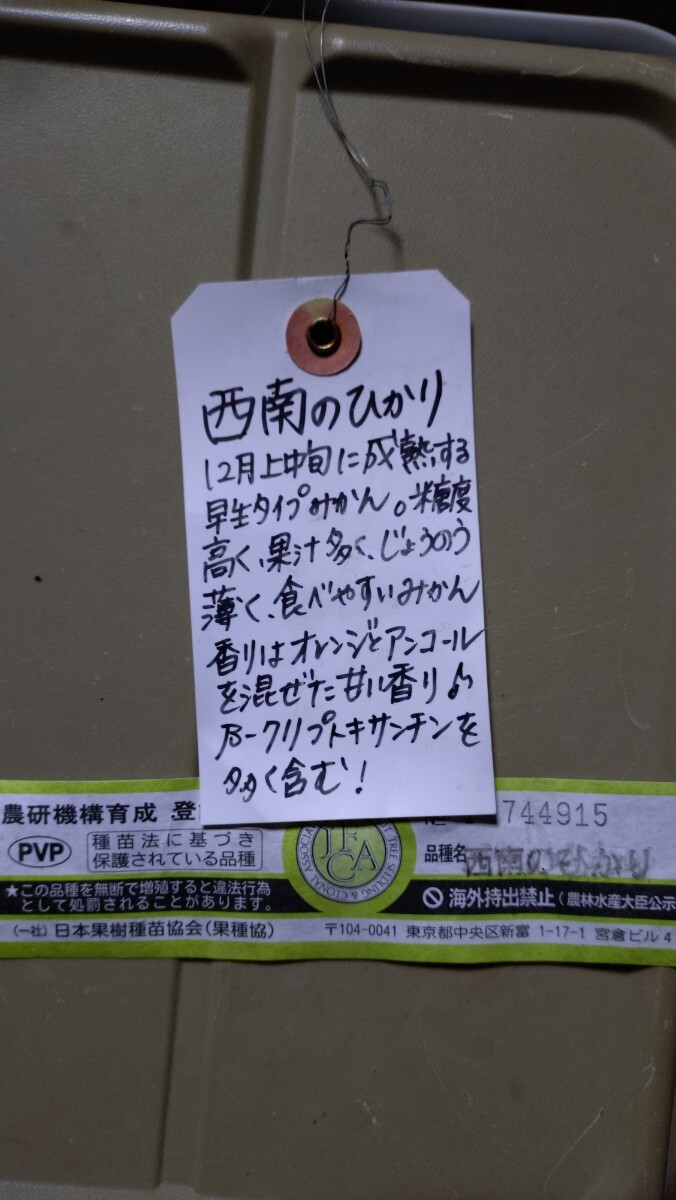 西南のひかり
12月上中旬に成熟する
早生タイプみかん。糖度
高く、果汁多く、じょうのう
薄く、食べやすいみかん
香りはオレンジとアンコール
を混ぜた甘い香り♪
β-クリプトキサンチンを
多く含む!
農研機構育成 登
744915
PVP
種苗法に基づき
保護されている品種
品種名 西南のひかり
★この品種を無断で増殖すると違法行為
として処罰されることがあります。
海外持出禁止(農林水産大臣公示
(一社)日本果樹種苗協会(果種協)
〒104-0041 東京都中央区新富 1-17-1 宮倉ビル4